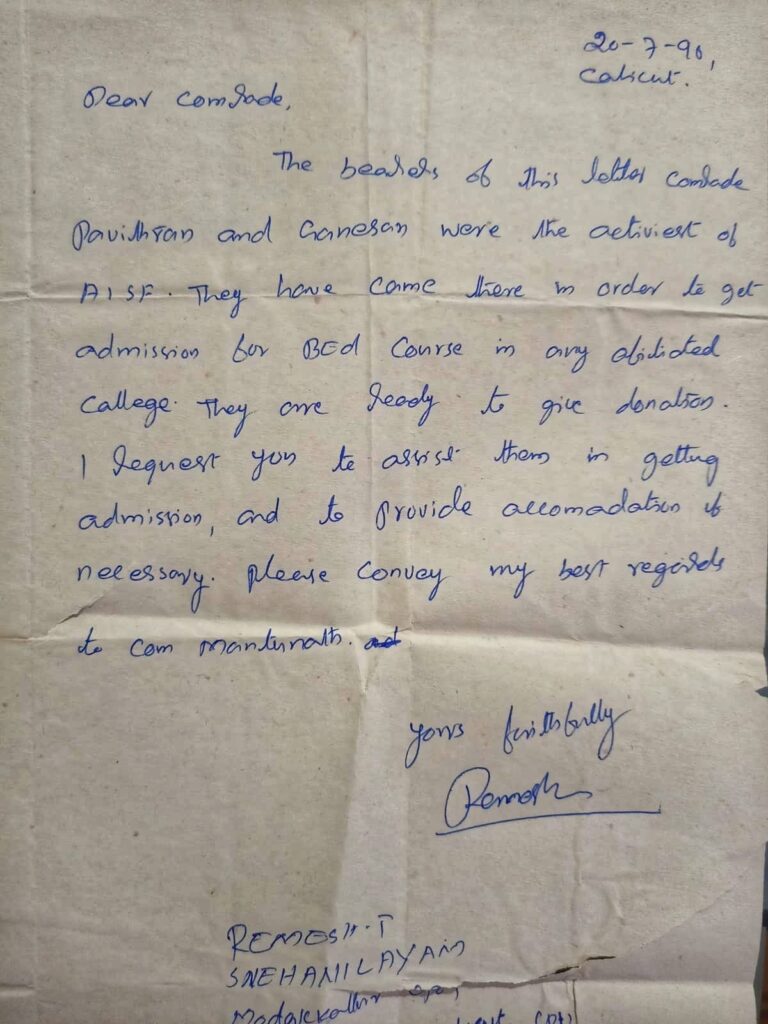 20-7-90,
Calicut.
Dear comrade,
The bearers of this letter comrade
Pavithran and Ganesan were the activiest of
AISF. They have came there in order to get
admission for BEd Course in any afiliated
College. They are ready to give donation.
I request you to assist them in getting
admission, and to provide accomadation if
necessary. Please convey my best regards
to com manturnath.
yours faithfully
Remesh
REMESH.T
SNEHANILAYAM
Madakkathir